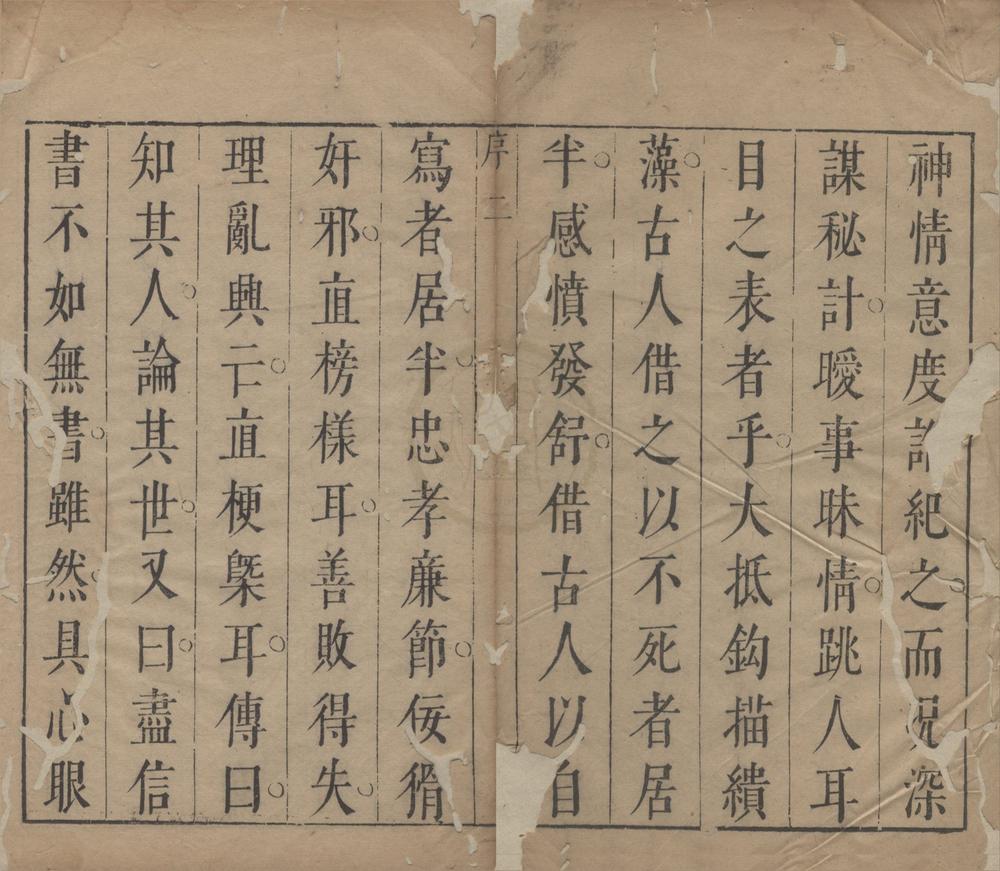 神情意度紀之而况深
謀秘計曖事昧情跳人耳
目之表者乎大抵鈎描繢
藻古人借之以不死者居
半感憤發舒借古人以自
序 二
寫者居半忠孝廉節佞猾
奸邪直榜樣耳善敗得失
理亂興亡直梗槩耳傳曰
知其人論其世又曰盡信
書不如無書雖然具心眼